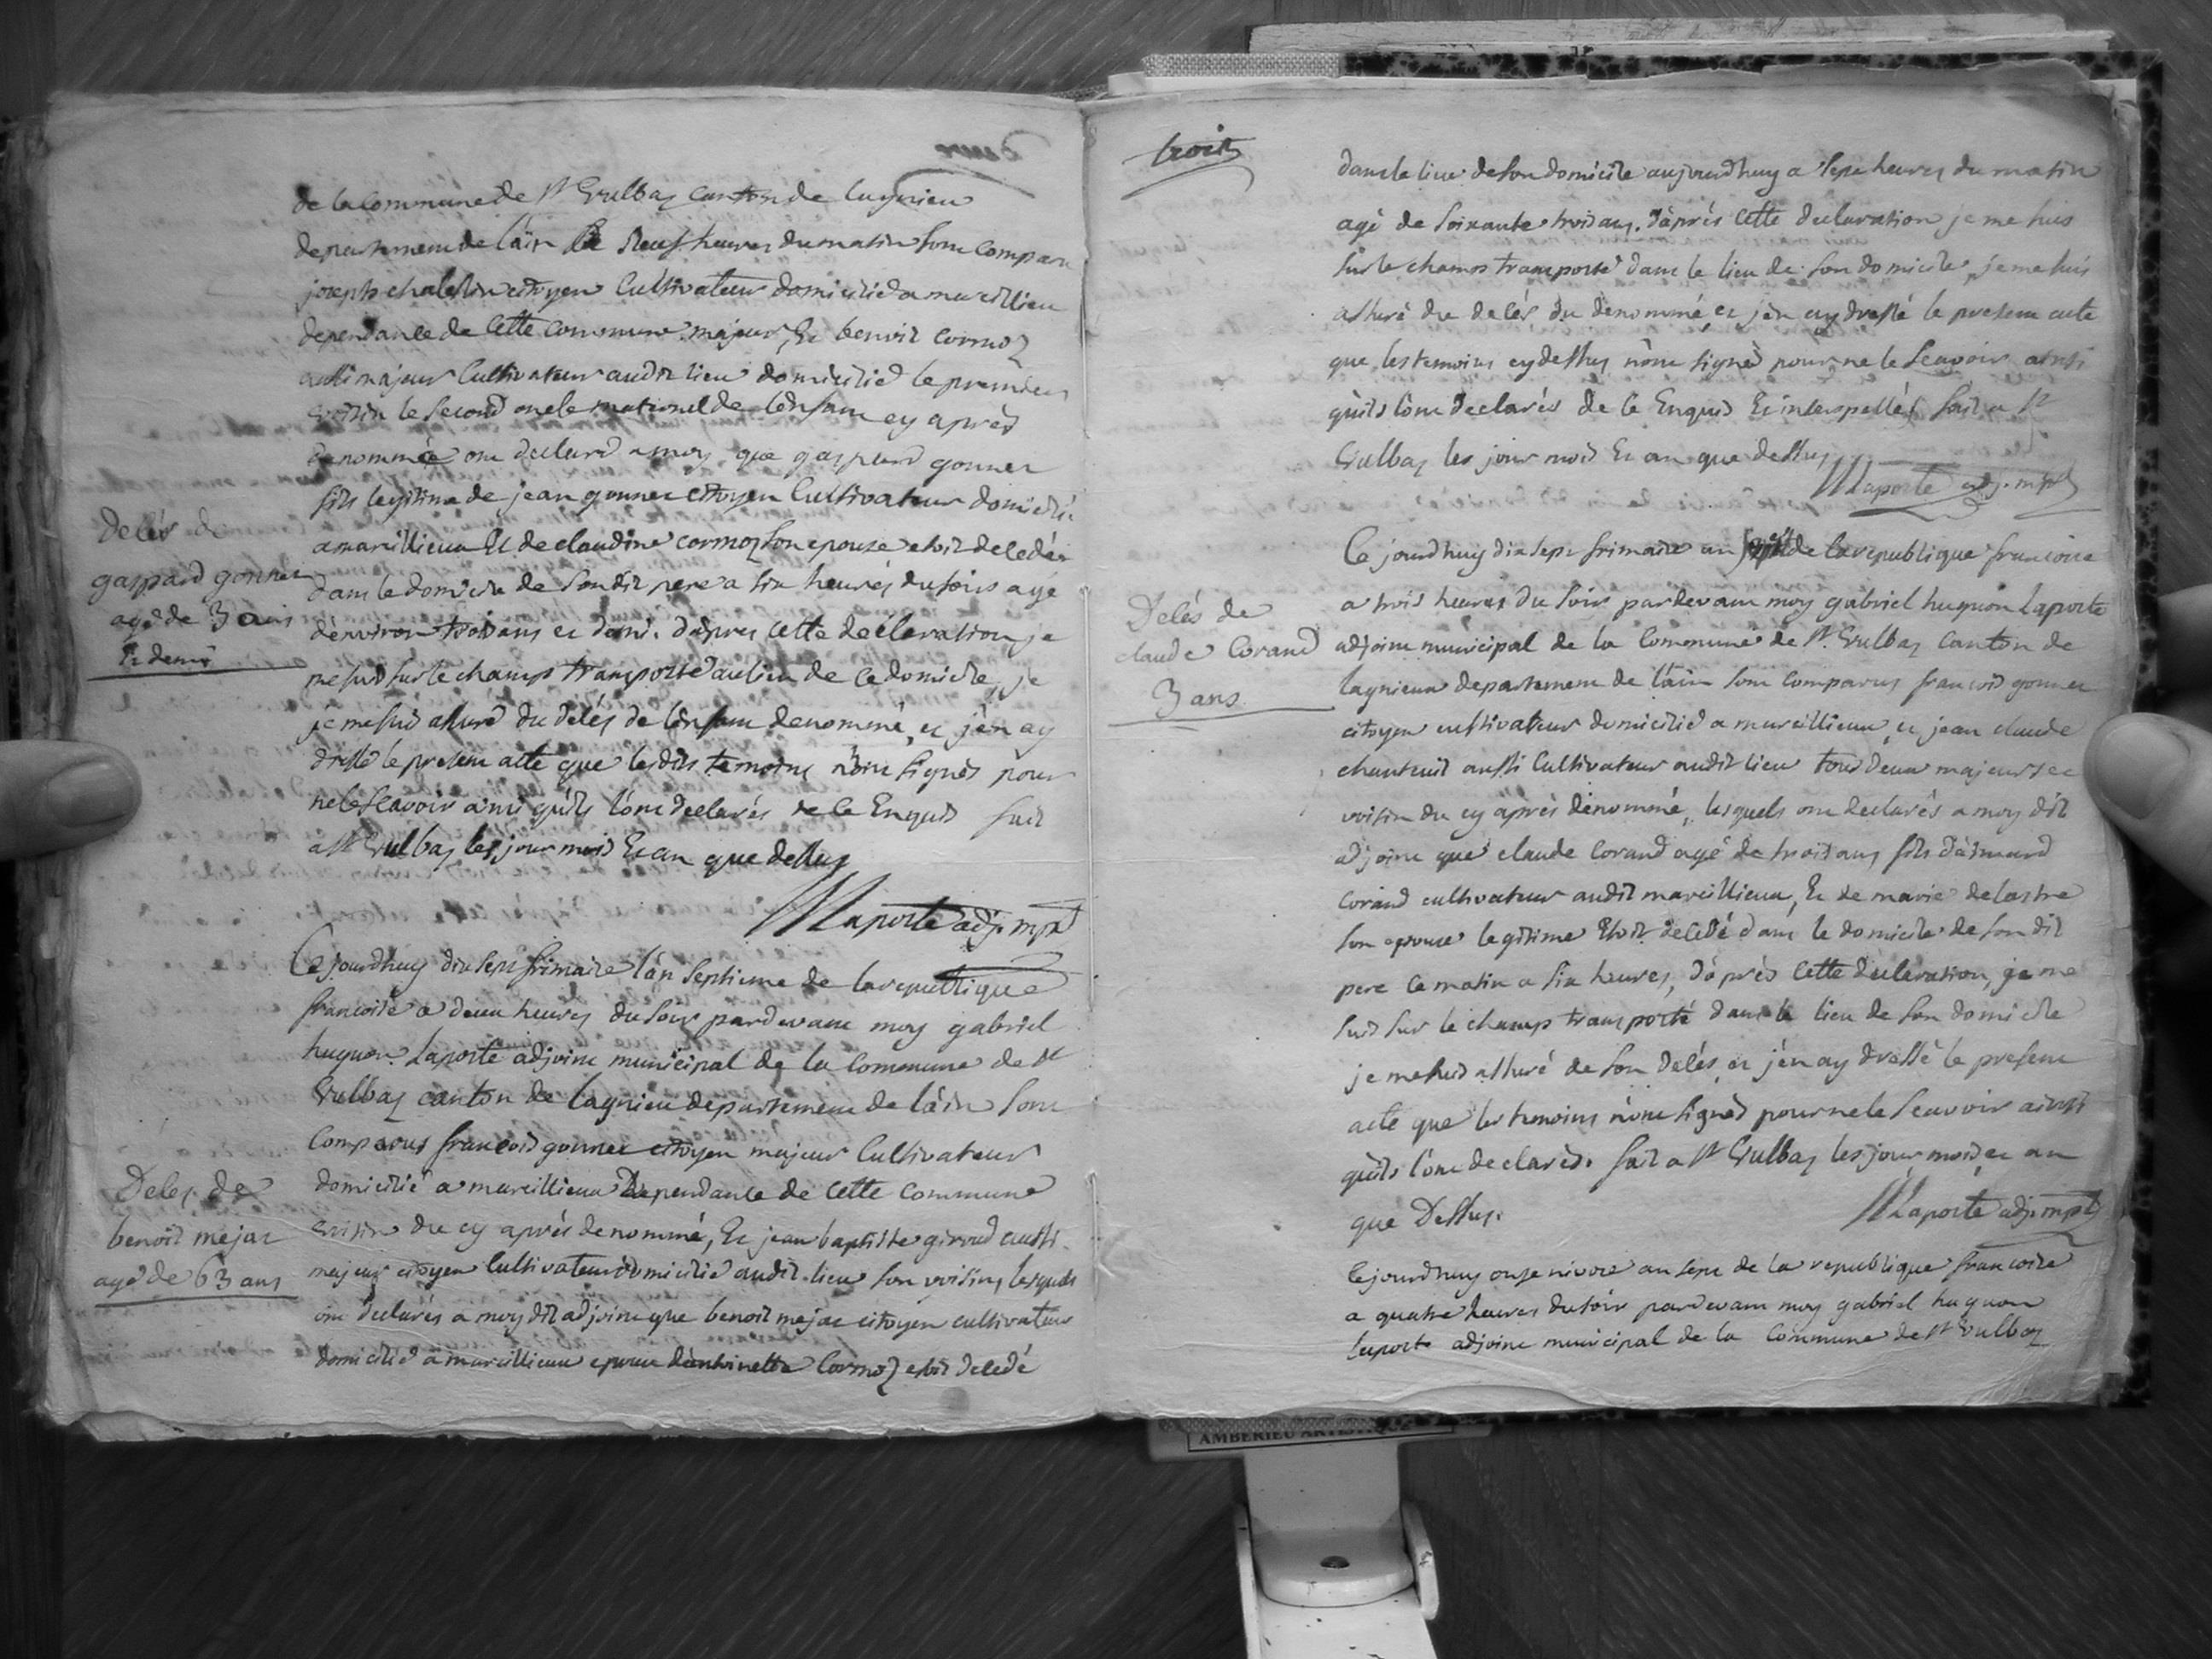 de la commune de St Vulbas canton de lagnieu
departement de l'ain Le Neuf heures du matin sont comparu
joseph chalestin citoyen Cultivateur domicilié a marcillieu
dependance de Cette commune majeur, Et benoit Cormoz
aussi majeur Cultivateur audit lieu domicilié le premier
voisin le second oncle maternel de l'enfant cy après
denommée ont declaré a moy que gaspard gonnet
fils legitime de jean gonnet citoyen Cultivateur domicilié
a marcillieux Et de claudine cormoz son epouse etoit decedée
dans le domicile de son dit pere a six heures du soir agé
d'environ trois ans et demi. d'apres cette declaration, je
me suis sur le champs transporté au lieu de ce domicile, je
je me suis assuré du décés de l'enfant denommé, et j'en ay
dressé le present acte que lesdits temoins n'ont signés pour
ne le scavoir ainsi qu'ils l'ont declarés de ce Enquis fait
a St Vulbas les jour mois Et an que dessus
Laporte adj. mpal
Décés de
gaspard gonnet
agé de 3 ans
Et demi
Ce jourdhuy dix sept frimaire l'an septieme de la republique
francoise a deux heures du soir pardevant moy gabriel
hugnon Laporte adjoint municipal de la Commune de St
Vulbas canton de lagnieu departement de l'ain sont
Comparus francois gonnet citoyen majeur Cultivateur
domicilié a marcillieux Dependance de cette commune
voisin du cy après denommé, Et jean baptiste giroud aussi
majeur citoyen Cultivateur domicilié audit lieu son voisin, lesquels
ont declarés a moy dit adjoint que benoit mejat citoyen cultivateur
domicilié a marcillieux epoux d'anthinette Cormoz etoit decedé
Deces de
benoit mejat
agé de 63 ans
trois
dans le lieu de son domicile aujourdhuy a sept heures du matin
agé de soixante trois ans. d'après cette declaration je me suis
sur le champs transporté dans le lieu de son domicile, je me suis
assuré du decés du denommé, et j'en ay dressé le present acte
que les temoins cy dessus n'ont signés pour ne le scavoir ainsi
qu'ils l'ont declarés de ce Enquis Et interpellés fait a St
Vulbas les jour mois Et an que dessus
Laporte adj. mpal
Ce jourdhuy dix sept frimaire an de la republique francoise
a trois heures du soir pardevant moy gabriel hugnon Laporte
adjoint municipal de la Commune de St. Vulbas canton de
lagnieux departement de l'ain sont comparus francois gonnet
citoyen cultivateur domicilié a marcillieux, et jean claude
chanteuil aussi Cultivateur audit lieu tous deux majeurs et
voisin du cy après dénommé, lesquels ont declarés a moy dit
adjoint que claude Corand agé de trois ans fils d'aimard
Corand cultivateur audit marcillieux, Et de marie delastre
son epouse legitime Etoit decedé dans le domicile de son dit
pere ce matin a six heures, d'après cette declaration, je me
suis sur le champs transporté dans le lieu de son domicile
je me suis assuré de son decés et j'en ay dressé le present
acte que les temoins n'ont signés pour ne le scavoir ainsi
qu'ils l'ont declarés. fait a St Vulbas les jour mois et an
que Dessus.
Laporte adj. mpal
Decés de
claude Corand
3 ans
Cejourdhuy onze nivose an sept de la republique francoise
a quatre heures du soir pardevant moy gabriel hugnon
Laporte adjoint municipal de la Commune de St Vulbas
AMBERIEU ARTISTIQUE